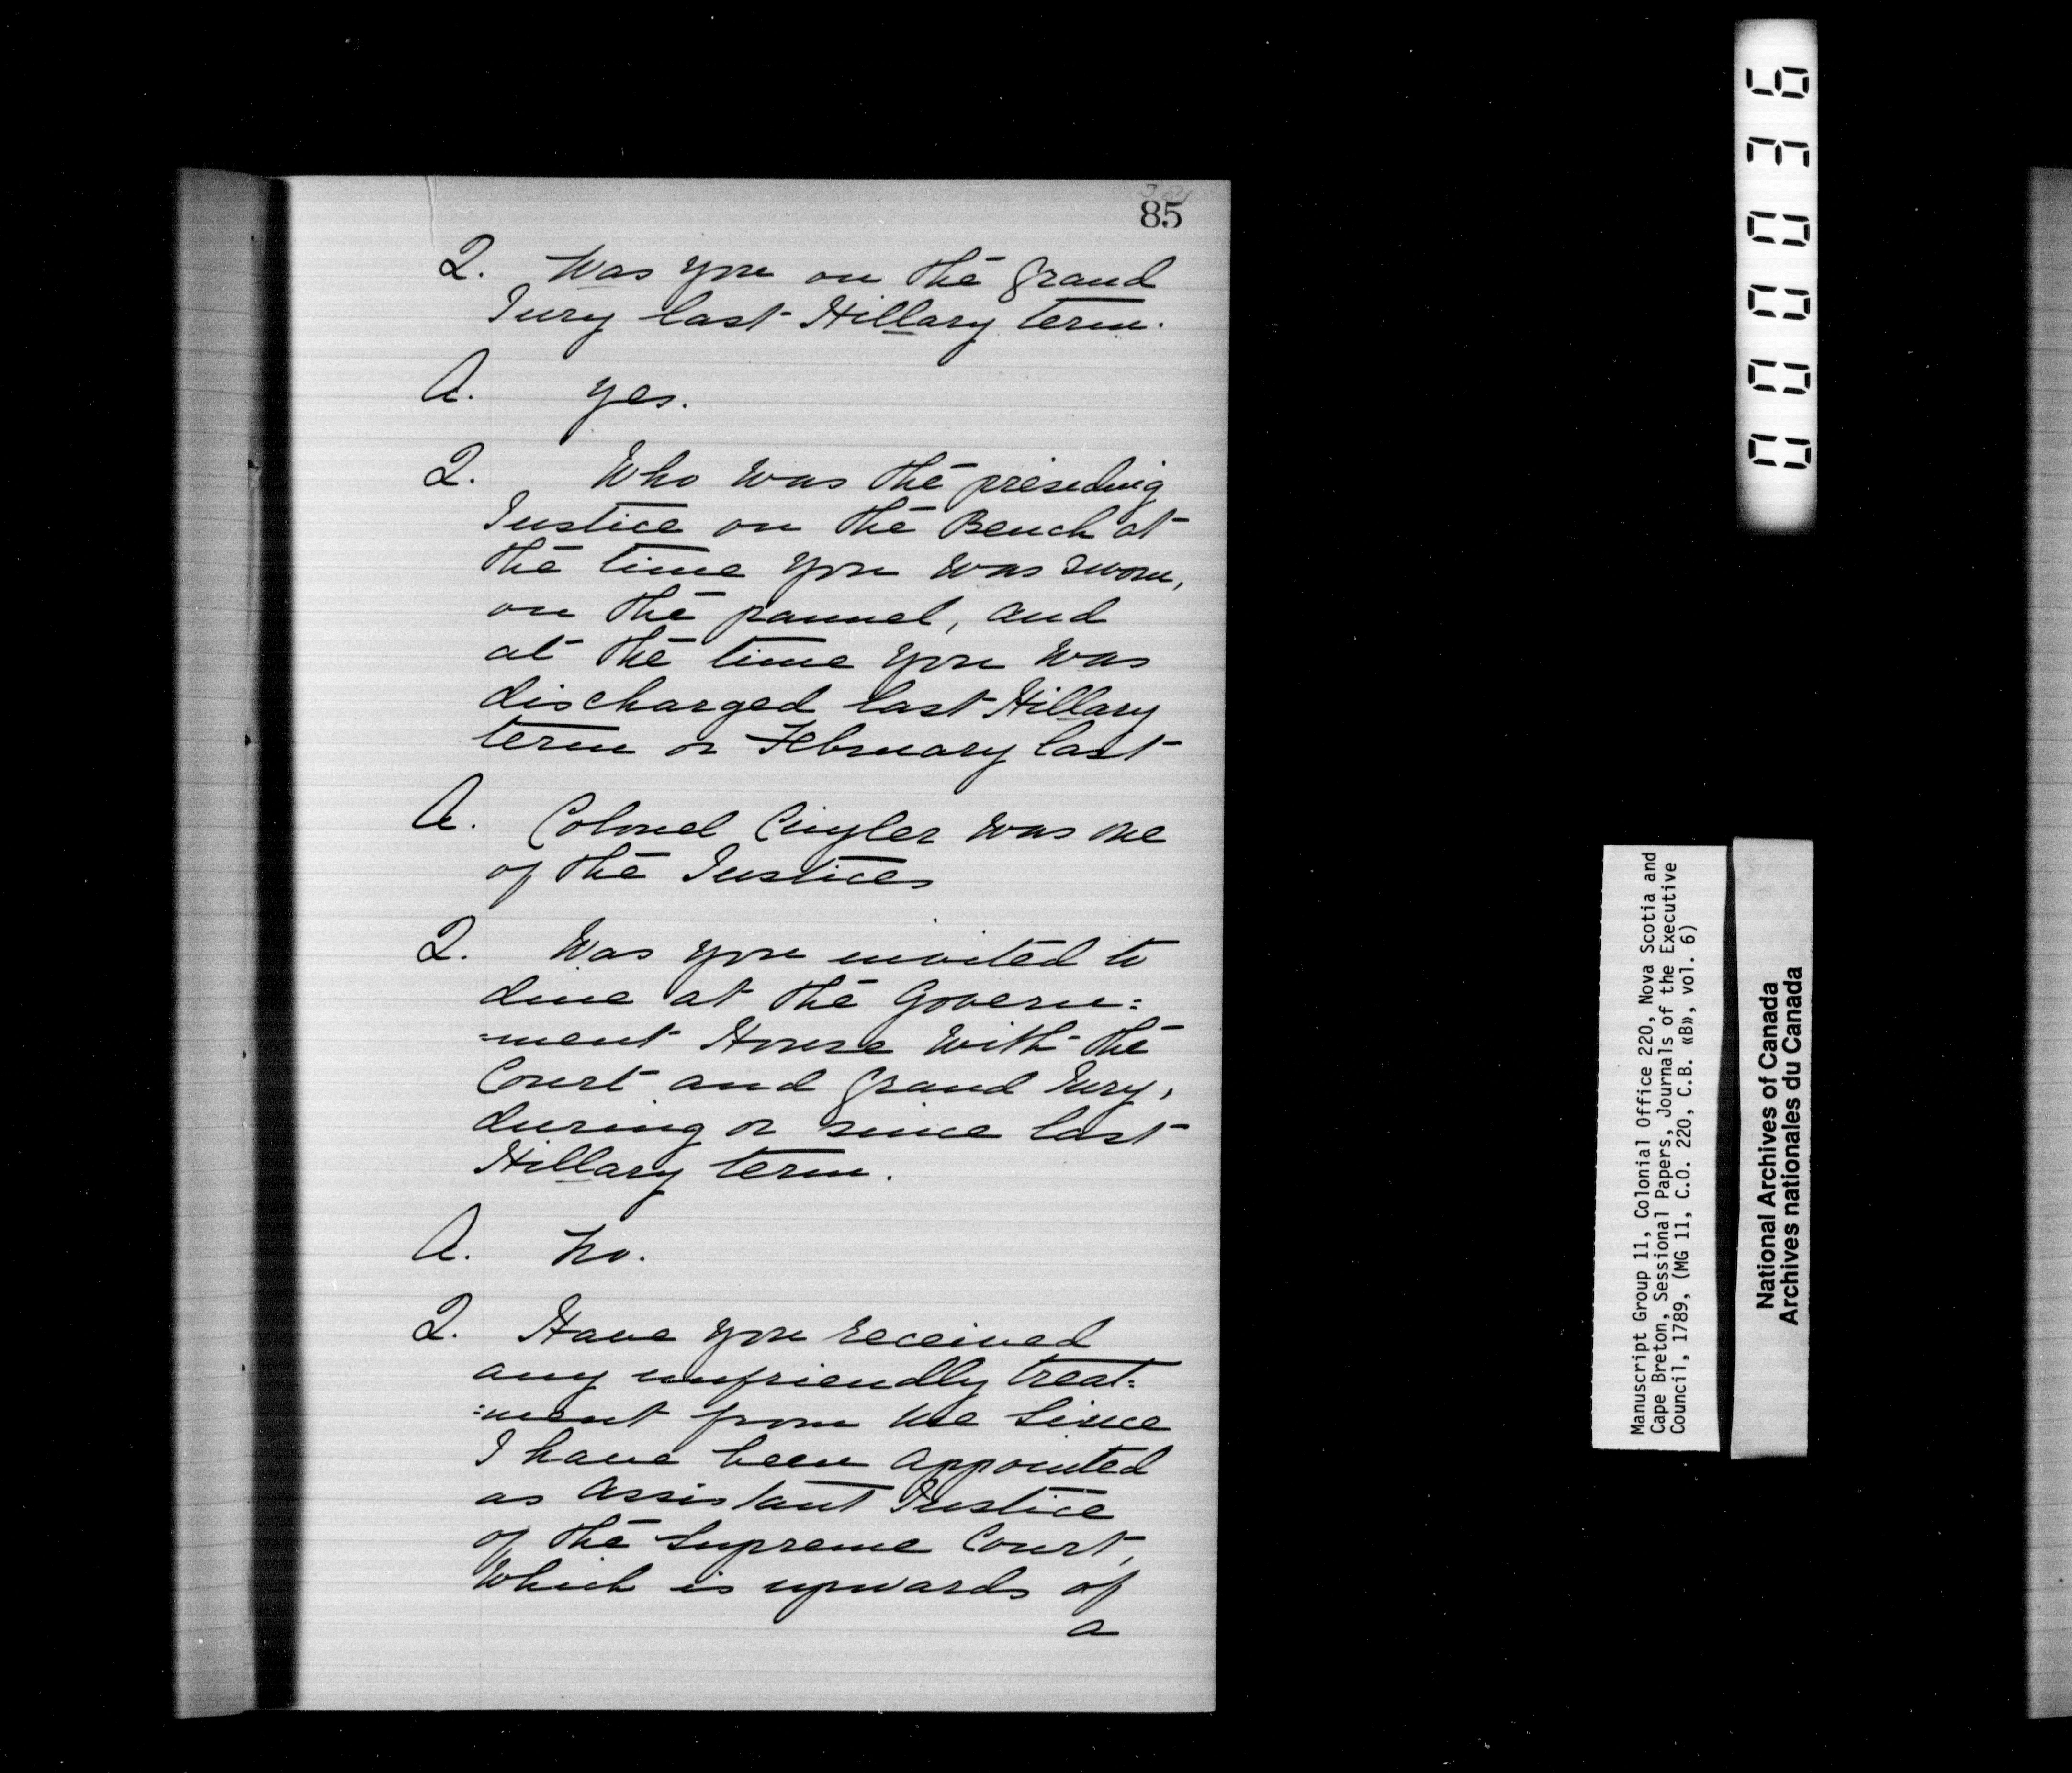 85
Q. Was you on the Grand
Jury last Hillary term.
A. yes.
Q. Who was the presiding
Justice on the Bench at
the time you was sworn,
on the pannel, and
at the time you was
discharged last Hillary
term or February last
A. Colonel Cuyler was one
of the Justices
Q. Was you invited to
dine at the Govern=
=ment House with the
Court and Grand Jury,
during or since last
Hillary term.
A. No.
Q. Have you received
any unfriendly treat=
=ment from me since
I have been appointed
as Assistant Justice
of the Supreme Court,
which is upwards of
a
000036
Manuscript Group 11, Colonial Office 220, Nova Scotia and
Cape Breton, Sessional Papers, Journals of the Executive
Council, 1789, (MG 11, C.O. 220, C.B. «B», vol. 6)
National Archives of Canada
Archives nationales du Canada